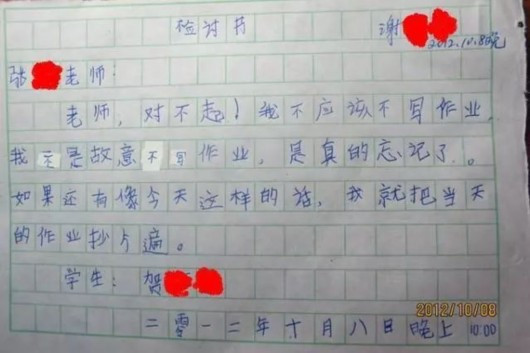 检讨书 谢
2012.10.8晚
张 老师:
老师,对不起!我不应该不写作业,
我不是故意不写作业,是真的忘记了。
如果还有像今天这样的话,我就把当天
的作业抄 遍。
学生: 贺
2012/10/08
二零一二年十月八日晚上10:00